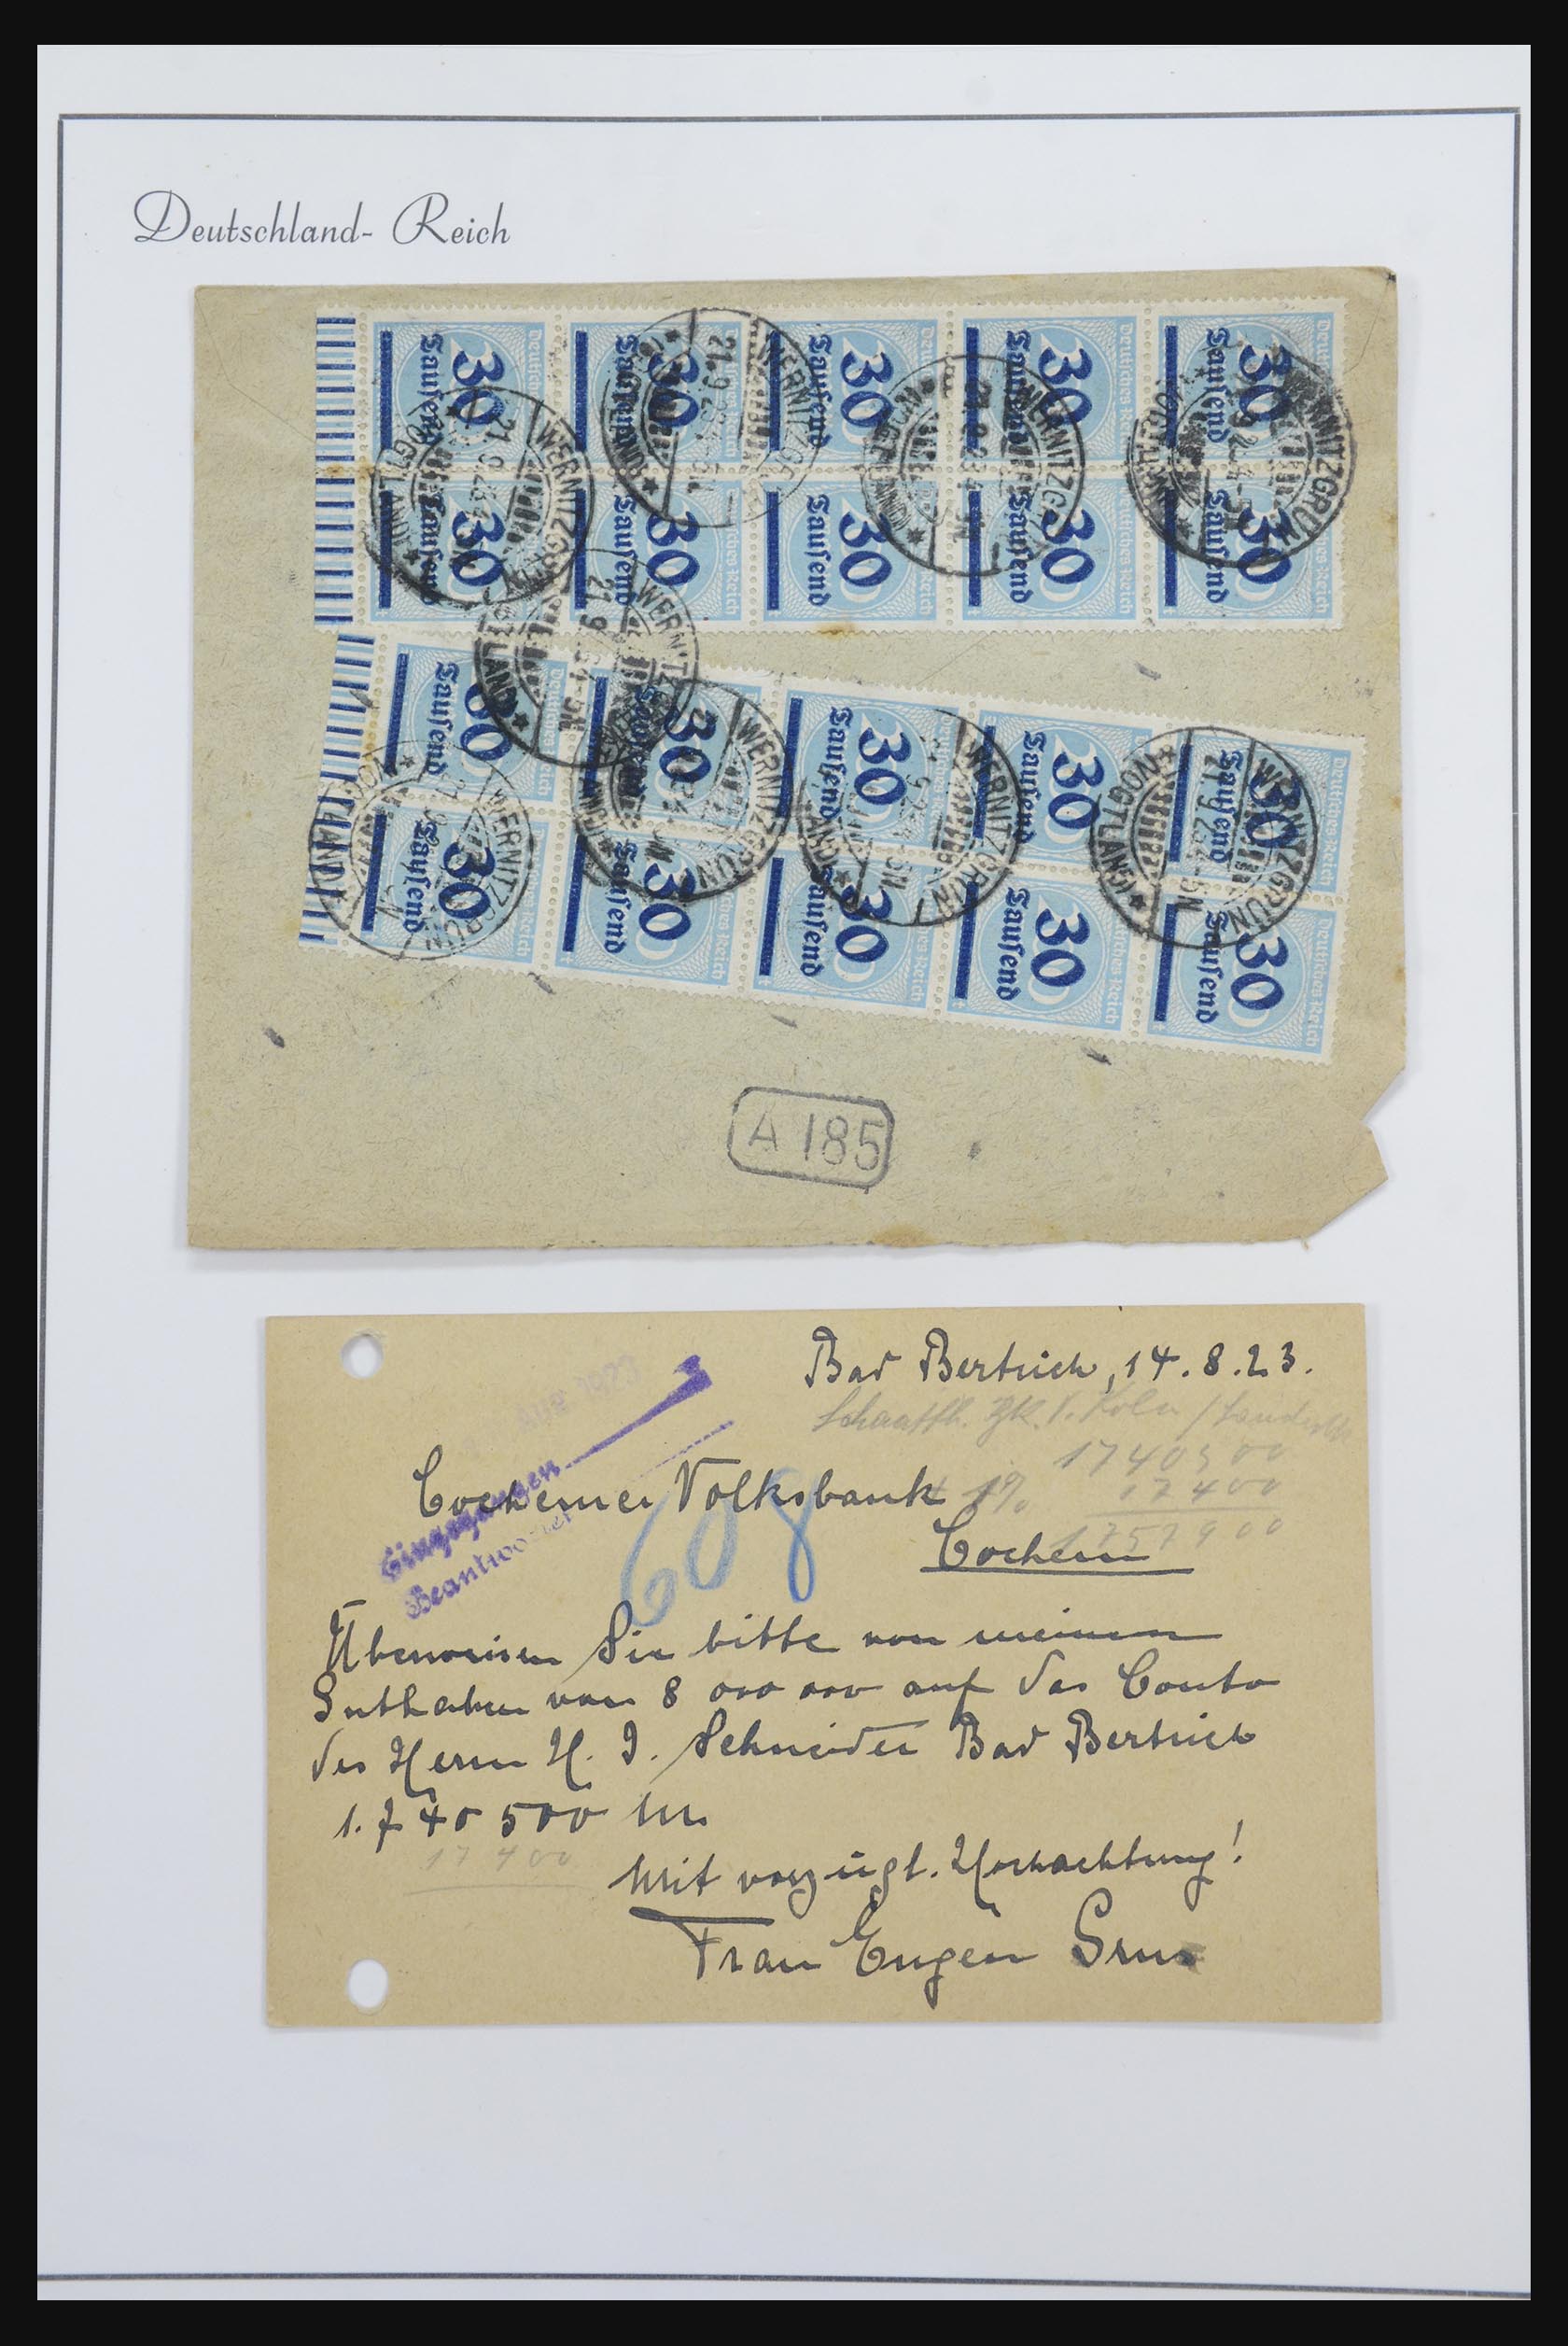 Deutschland- Reich
30 Tausend 30 Tausend 30 Tausend 30 Tausend 30 Tausend
Deutsches Reich Deutsches Reich Deutsches Reich Deutsches Reich Deutsches Reich
30 Tausend 30 Tausend 30 Tausend 30 Tausend 30 Tausend
Deutsches Reich Deutsches Reich Deutsches Reich Deutsches Reich Deutsches Reich
WERNITZGRÜN
21.9.23.4-5N
(VOGTLAND)
30 Tausend 30 Tausend 30 Tausend 30 Tausend 30 Tausend
30 Tausend 30 Tausend 30 Tausend 30 Tausend 30 Tausend
A 185
Bad Bertrich, 14.8.23.
Schaaffh. Bk. Köln /
1740500
Cochemer Volksbank 1% 17400
1757900
Cochem
Aug 1923
Eingegangen
Beantwortet
608
Überweisen Sie bitte von meinem
Guthaben von 8 000 000 auf das Conto
des Herrn H. J. Schneider Bad Bertrich
1.740 500 M.
17400
Mit vorzügl. Hochachtung!
Frau Eugen